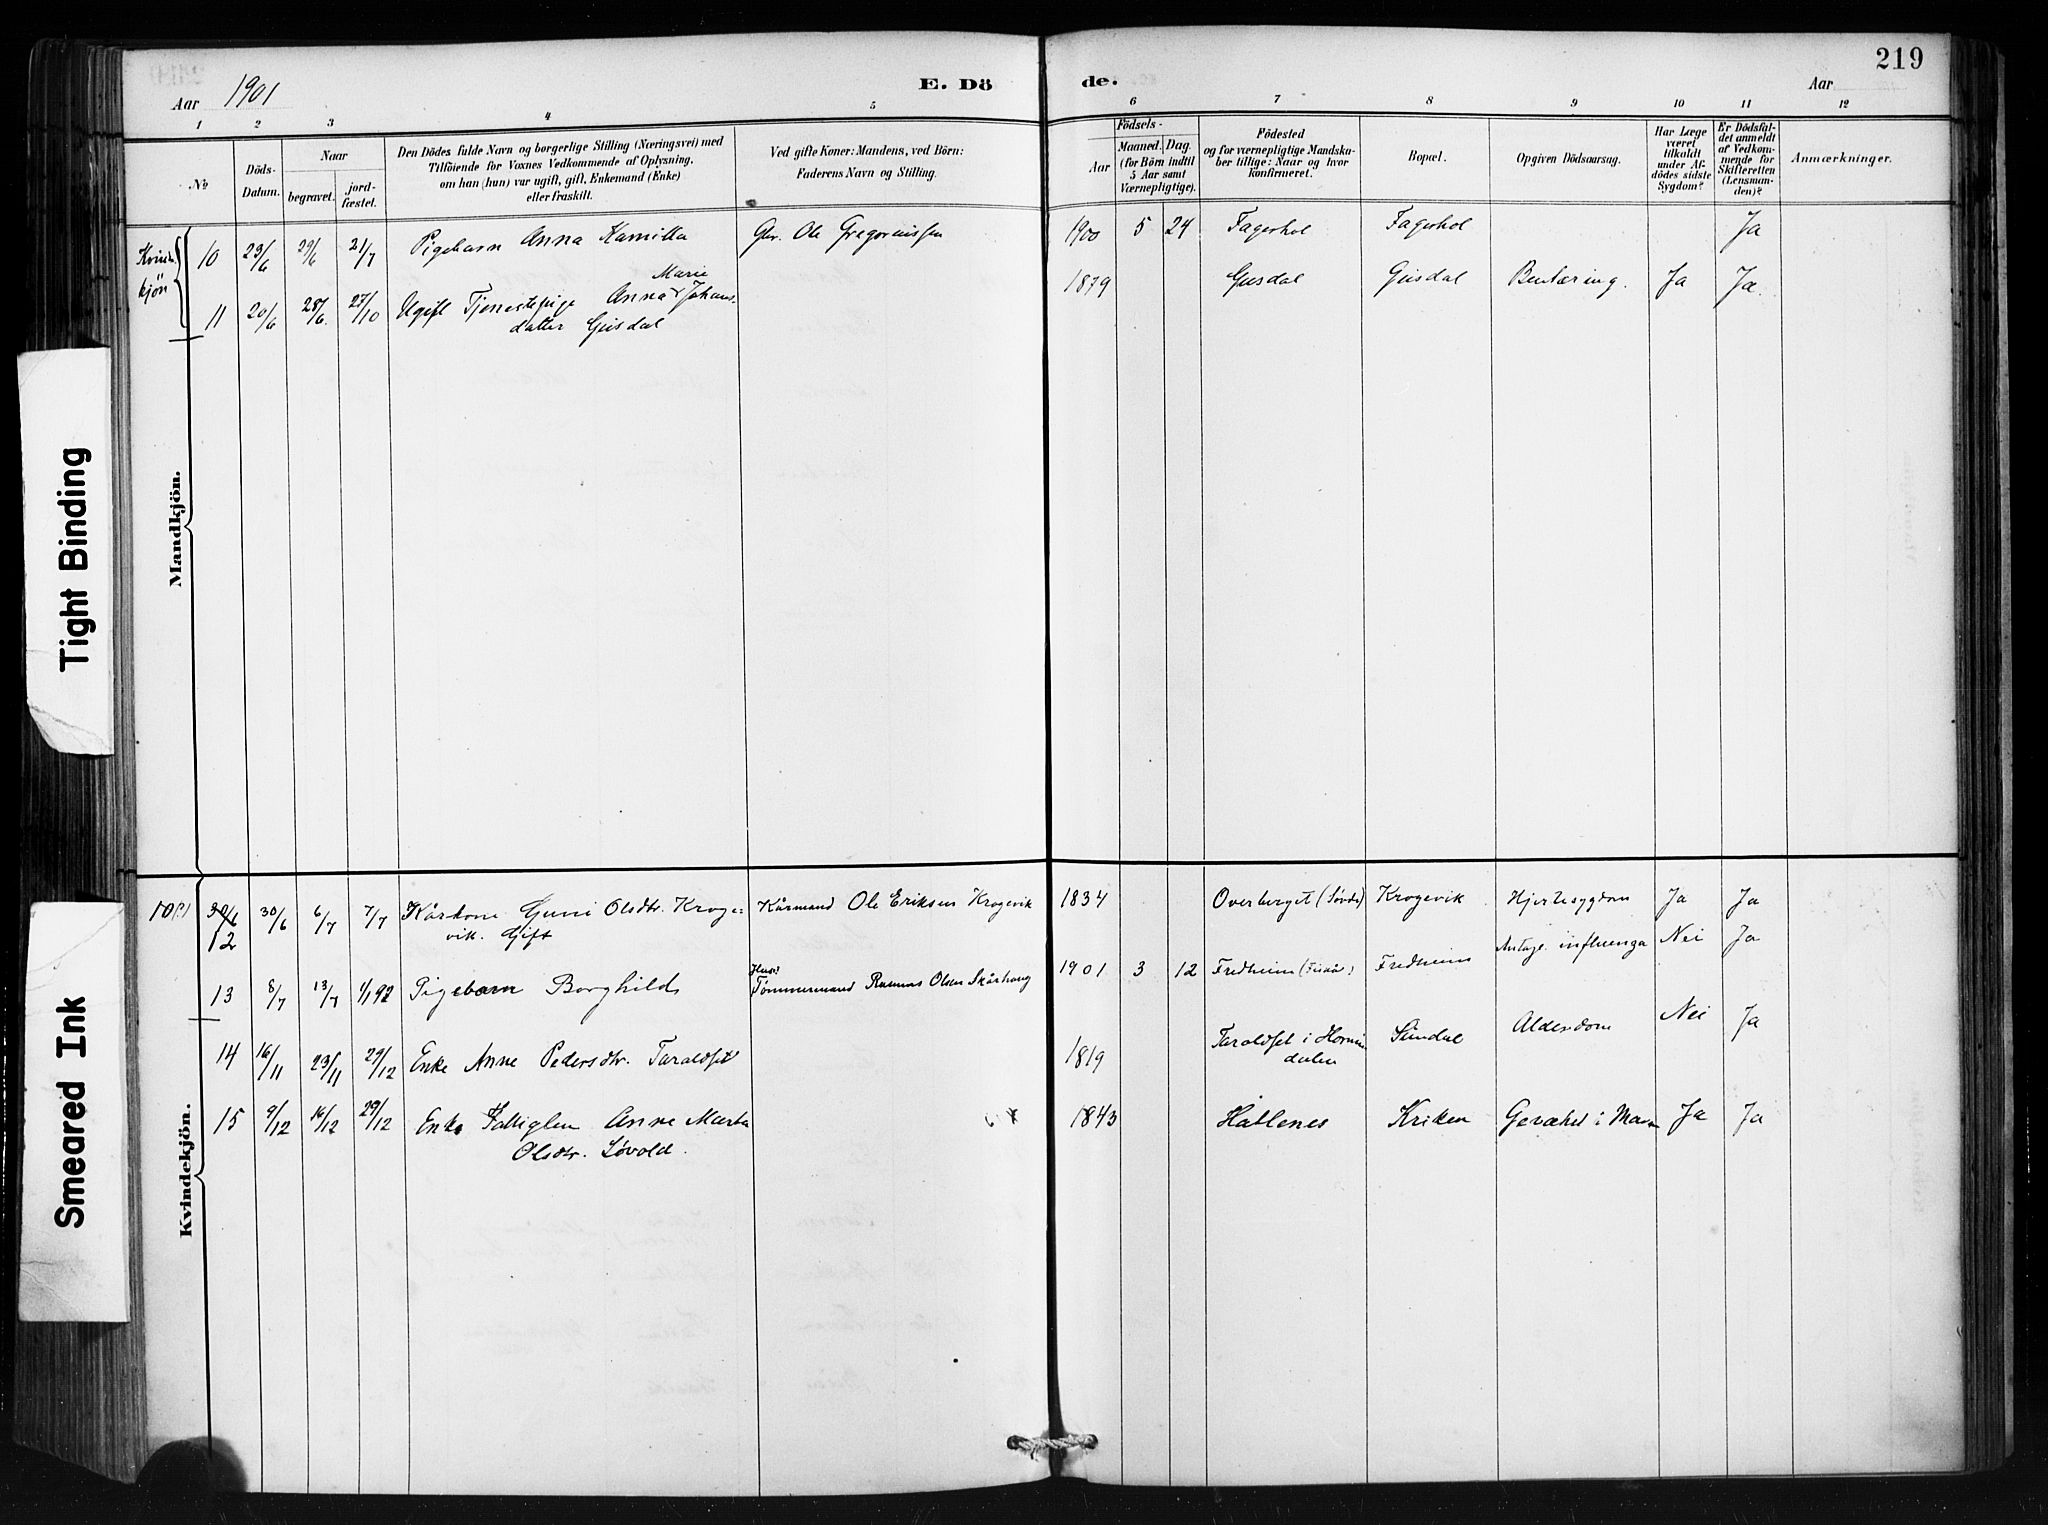 219
Aar 1901
E. Dö
de.
Aar
1 2 3 4 5 6 7 8 9 10 11 12
No
Döds-
Datum.
Naar
begravet.
jord-
fæstet.
Den Dödes fulde Navn og borgerlige Stilling (Næringsvei) med
Tilföiende for Voxnes Vedkommende af Oplysning,
om han (hun) var ugift, gift, Enkemand (Enke)
eller fraskilt.
Ved gifte Koner: Mandens, ved Börn:
Faderens Navn og Stilling.
Födsels-
Aar
Maaned.
Dag.
(for Börn indtil
5 Aar samt
Værnepligtige).
Födested
og for værnepligtige Mandska-
ber tillige: Naar og hvor
konfirmeret.
Bopæl.
Opgiven Dödsaarsag.
Har Læge
været
tilkaldt
under Af-
dödes sidste
Sygdom?
Er Dödsfal-
det anmeldt
af Vedkom-
mende for
Skifteretten
(Lensman-
den)?
Anmærkninger.
Kvinde-
kjön
10 23/6 29/6 21/7 Pigebarn Anna Kamilla Gbr. Ole Gregoriussen 1900 5 24 Fagerhol Fagerhol Ja
Marie
11 20/6 28/6 27/10 Ugift Tjenestepige Anna Johans-
datter Gusdal 1879 Gusdal Gusdal Bentæring. Ja Ja.
Mandkjön.
Tight Binding
1901 30/6
12 30/6 6/7 7/7 Kårkone Guni Olsdtr. Kroge-
vik. Gift Kårmand Ole Eriksen Krogevik 1834 Overberget (Søvde) Krogevik Hjertesygdom Ja Ja
13 8/7 13/7 1/1 92 Pigebarn Borghild
Tømmermand Rasmus Olsen Skårhaug 1901 3 12 Fredheim Fredheim Antage. influenza Nei Ja
14 16/11 23/11 29/12 Enke Anne Pedersdtr. Taraldset 1819 Taraldset i Hornin-
dalen Sundal Alderdom Nei Ja
15 9/12 16/12 29/12 Enke Fattiglem Anne Marta
Olsdtr. Løvold. 1843 Hatlenes Kriken Gevækst i Maven Ja Ja
Kvindekjön.
Smeared Ink